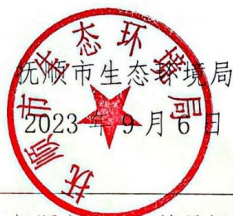 抚顺市生态环境局
2023年9月6日
抚顺市生态环境局